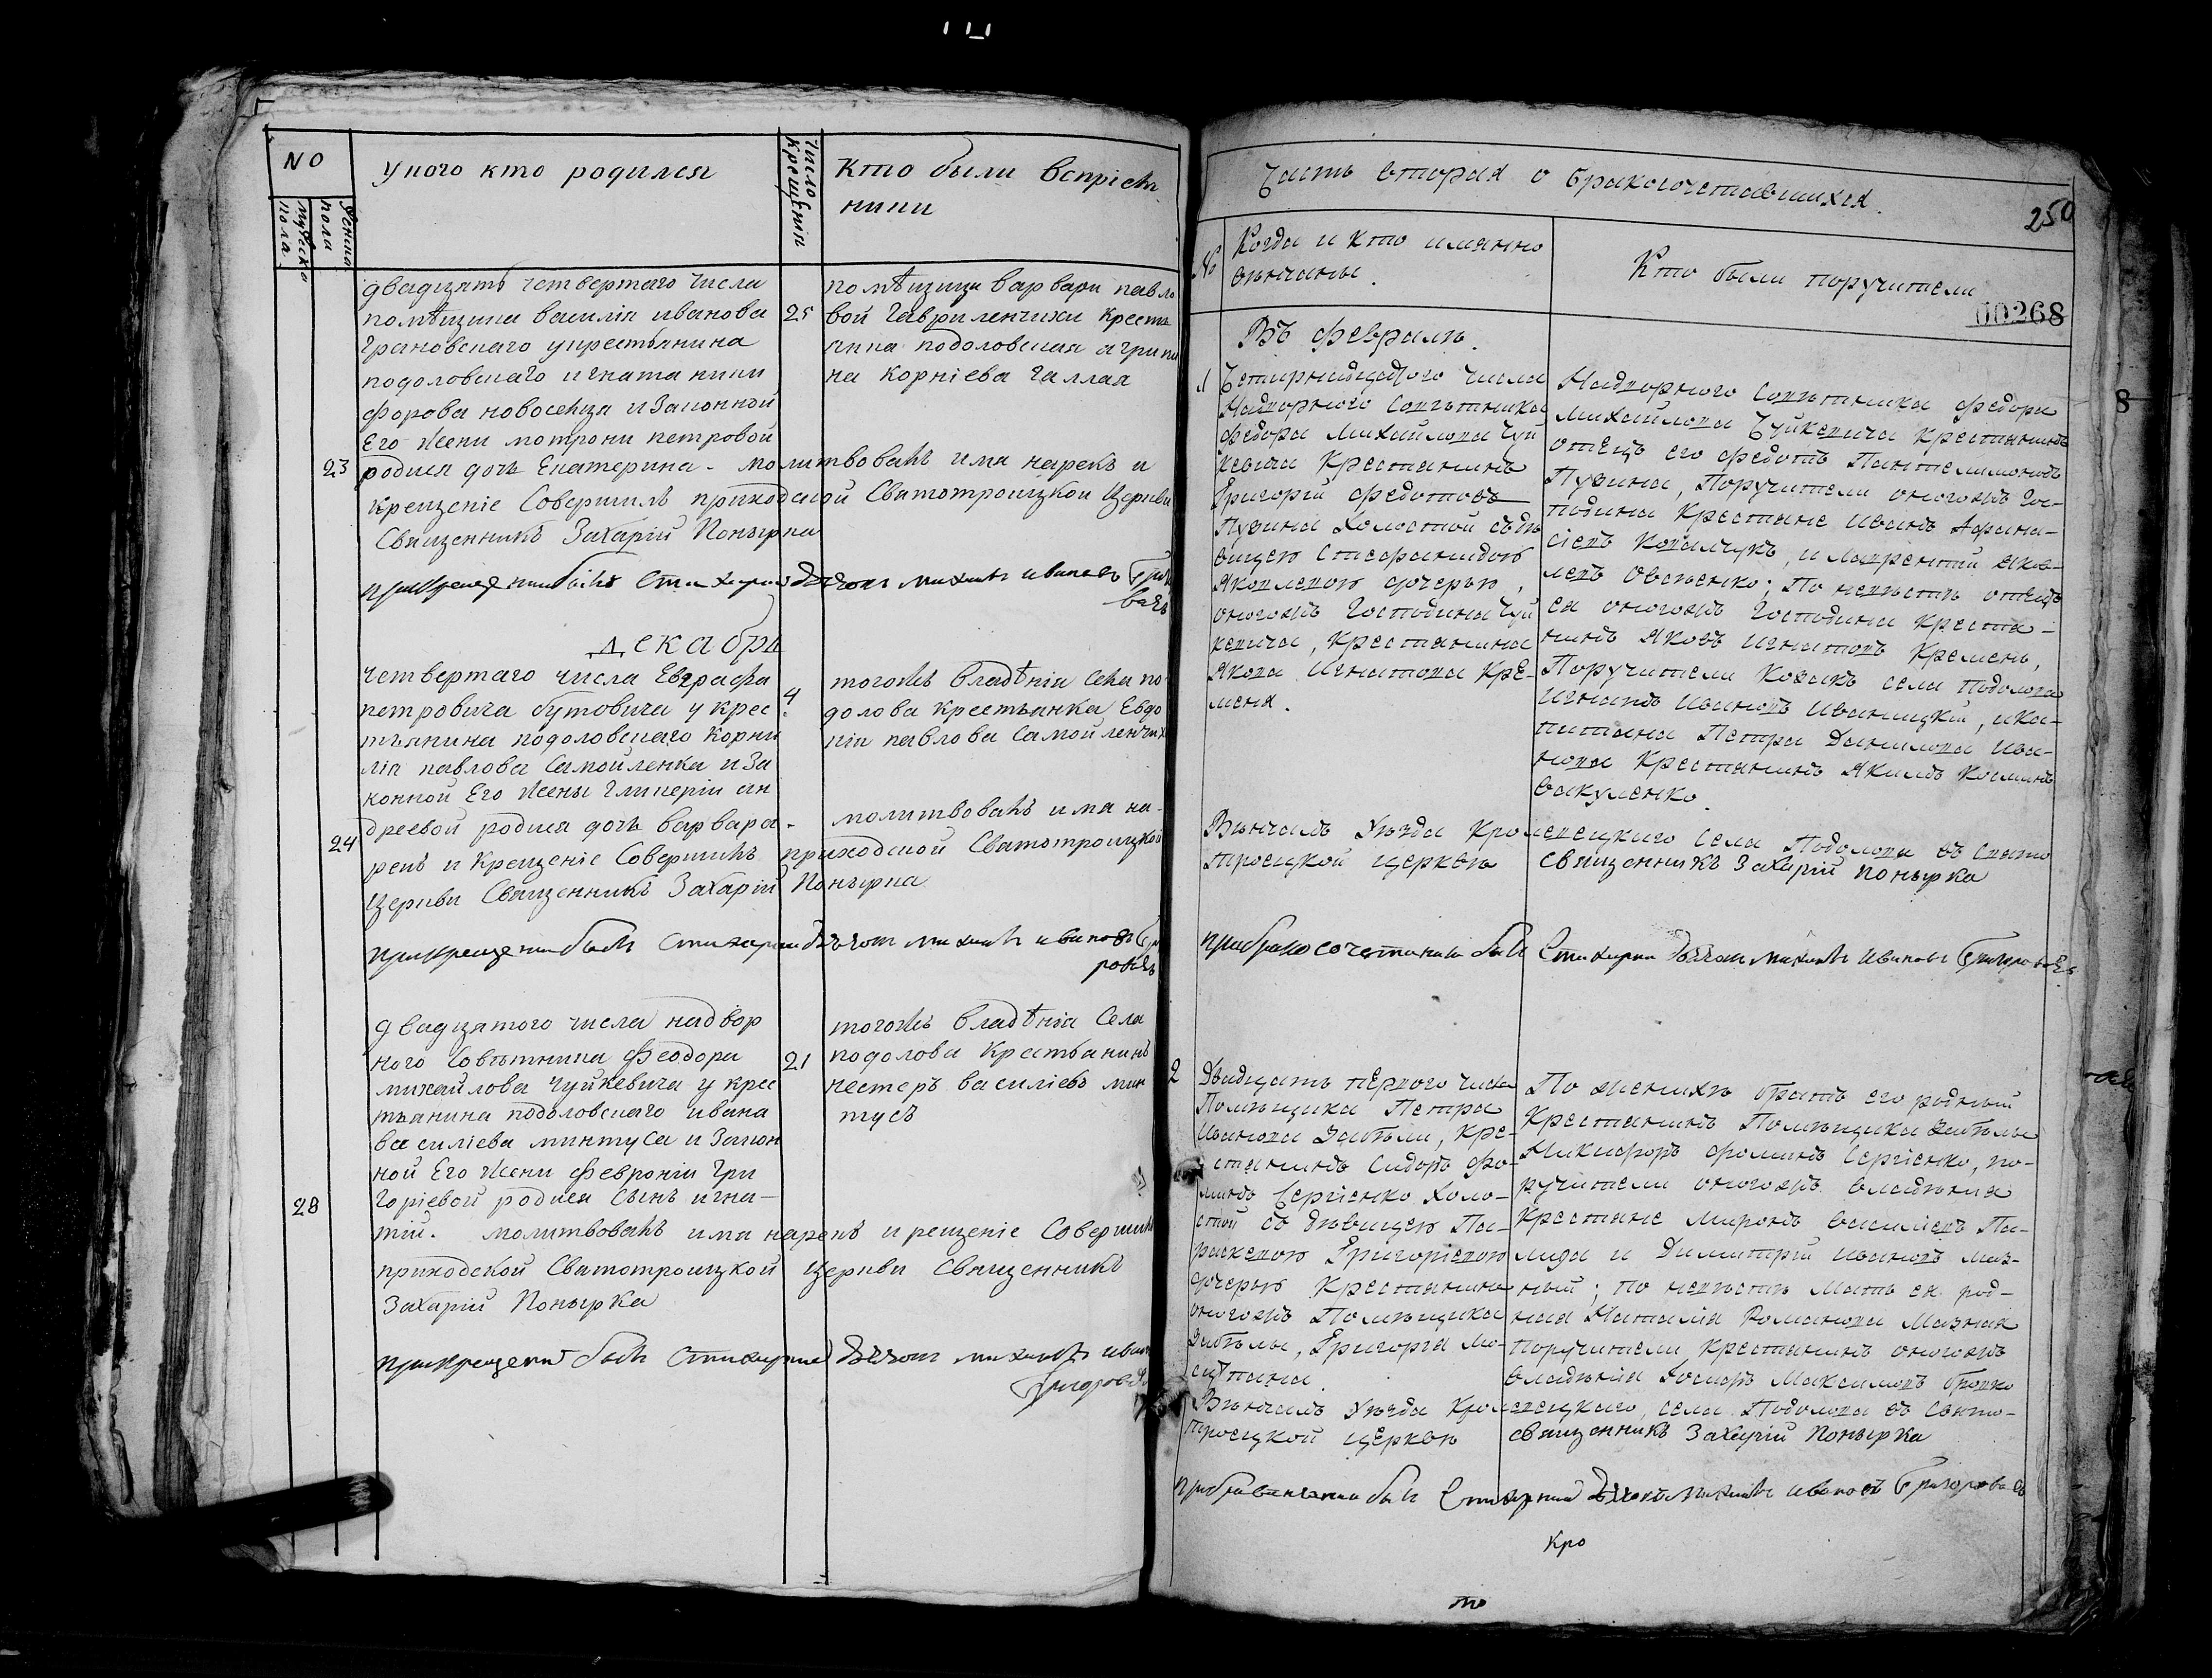 NO
мужеско пола
женско пола
у кого кто родился
число крещенія
кто были воспріем
ники
двадцять четвертаго числа
помѣщика василія иванова
грановскаго укрестьянина
подоловскаго игната ники
форова новосельца и законной
Его жены мотрони петровой
23 родися дочь Екатерина. молитвовалъ имя нарекъ и
крещеніе Совершилъ приходской Святотроицкой Церкви
Священникъ Захарій Понырка
25
помѣщици варвари павло
вой Гавриленчихи кресть
янка подоловская агрипи
на корніева галлая
при крещеніи былъ Стихарній дьячокъ михаилъ ивановъ
декабрь
четвертаго числа Евграфа
петровича бутовича у крес
тьянина подоловскаго Корни
лія павлова Самойленка и За
конной Его жены гликеріи ан
24 дреевой родися дочь варвара. молитвовалъ имя на-
рекъ и Крещеніе Совершилъ приходской Святотроицкой
церкви Священникъ Захарій Понырка
4
тогожъ владѣнія Села по
долова крестьянка Евдо
кія павлова Самойленчиха
при крещеніи былъ Стихарній дьячокъ михаилъ ивановъ
двадцятого числа надвор
ного Совѣтника Феодора
михайлова Чуйкевича у крес
тьянина подоловскаго ивана
василіева минтуса и Закон
ной Его жени февроніи гри
28 горіевой родися Сынъ игна-
тій. молитвовалъ имя нарекъ и крещеніе Совершилъ
приходской Святотроицкой Церкви Священникъ
Захарій Понырка
21
тогожъ владѣнія Села
подолова Крестьянинъ
нестеръ василіевъ мин
тусъ
при крещеніи былъ Стихарній дьячокъ михаилъ иванъ
Григоровичъ
Часть вторая о бракосочетавшихся.
250
№
Когда и кто имянно
вѣнчаны.
Кто были поручители
00268
8
Въ февралѣ.
1 Четирнадцатого числа
Надворного Совѣтника
федора Михайлова Чуй
кевича Крестянинъ
Григорій федотовъ
Пузина холостой съ дѣ
вицею Стефанидою
Яковлевою дочерью,
оногожъ Господина Чуй
кевича, Крестянина
Якова Игнатова Кре-
меня.
Надворного Совѣтника федора
Михайлова Чуйкевича Крестянинъ
отецъ его федотъ Пантелимоновъ
Пузина, Поручители оногожъ Гос-
подина Крестяне Иванъ Афана-
сіевъ Ковалчукъ, и Лаврентій Яков-
левъ Овсѣенко; По невѣстѣ отецъ
ея оногожъ Господина Крестя-
нинъ Яковъ Игнатовъ Кремень,
Поручители Козакъ села Подолова
Игнатъ Ивановъ Иваницкій, и ка-
питана Петра Данилова Ива-
нова Крестянинъ Якимъ Косминъ
Вакуленко.
Вѣнчалъ Уѣзда Кролевецкаго Села Подолова въ Свято
троецкой церквѣ Священникъ Захарій Понырка
при бракосочетаніи былъ Стихарній дьячокъ михаилъ Ивановъ Григоровичъ
2 Двадцать первого числа
Помѣщика Петра
Иванова Забѣлы, Кре-
стянинъ Сидоръ Фо-
минъ Сергіенко холо-
стой съ дѣвицею Па-
раскевою Григоріевою
дочерью Крестянина
оногожъ Помѣщика
Забѣлы, Григорія
По женихѣ братъ его родный
Крестянинъ Помѣщика Забѣлы
Никифоръ фоминъ Сергіенко, по-
ручители оногожъ владѣнія
Крестяне Миронъ Василіевъ Па-
лида и Димитрій Ивановъ маз-
ный; по невѣстѣ мать ея род-
ная Наталія Романова Мазная
Поручители Крестянинъ оногожъ
владѣнія Іосифъ Максимовъ
Вѣнчалъ Уѣзда Кролевецкаго, села Подолова въ Свято-
троецкой церквѣ священникъ Захарій Понырка
былъ Стихарній дьячокъ михаилъ Ивановъ Григоровичъ
кро
то